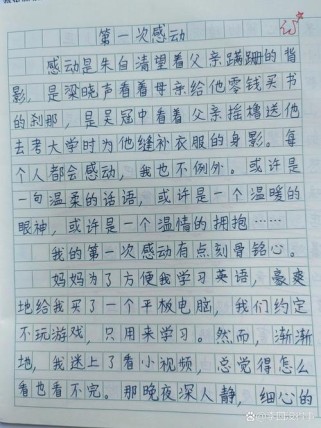 第一次感动
感动是朱自清望着父亲蹒跚的背
影，是梁晓声看着母亲给他零钱买书
的刹那，是吴冠中看着父亲摇橹送他
去考大学时为他缝补衣服的身影。每
个人都会感动，我也不例外。或许是
一句温柔的话语，或许是一个温暖的
眼神，或许是一个温情的拥抱……
我的第一次感动有点刻骨铭心。
妈妈为了方便我学习英语，豪爽
地给我买了一个平板电脑，我们约定
不玩游戏，只用来学习。然而，渐渐
地，我迷上了看小视频，总觉得怎么
看也看不完。那晚夜深人静，细心的